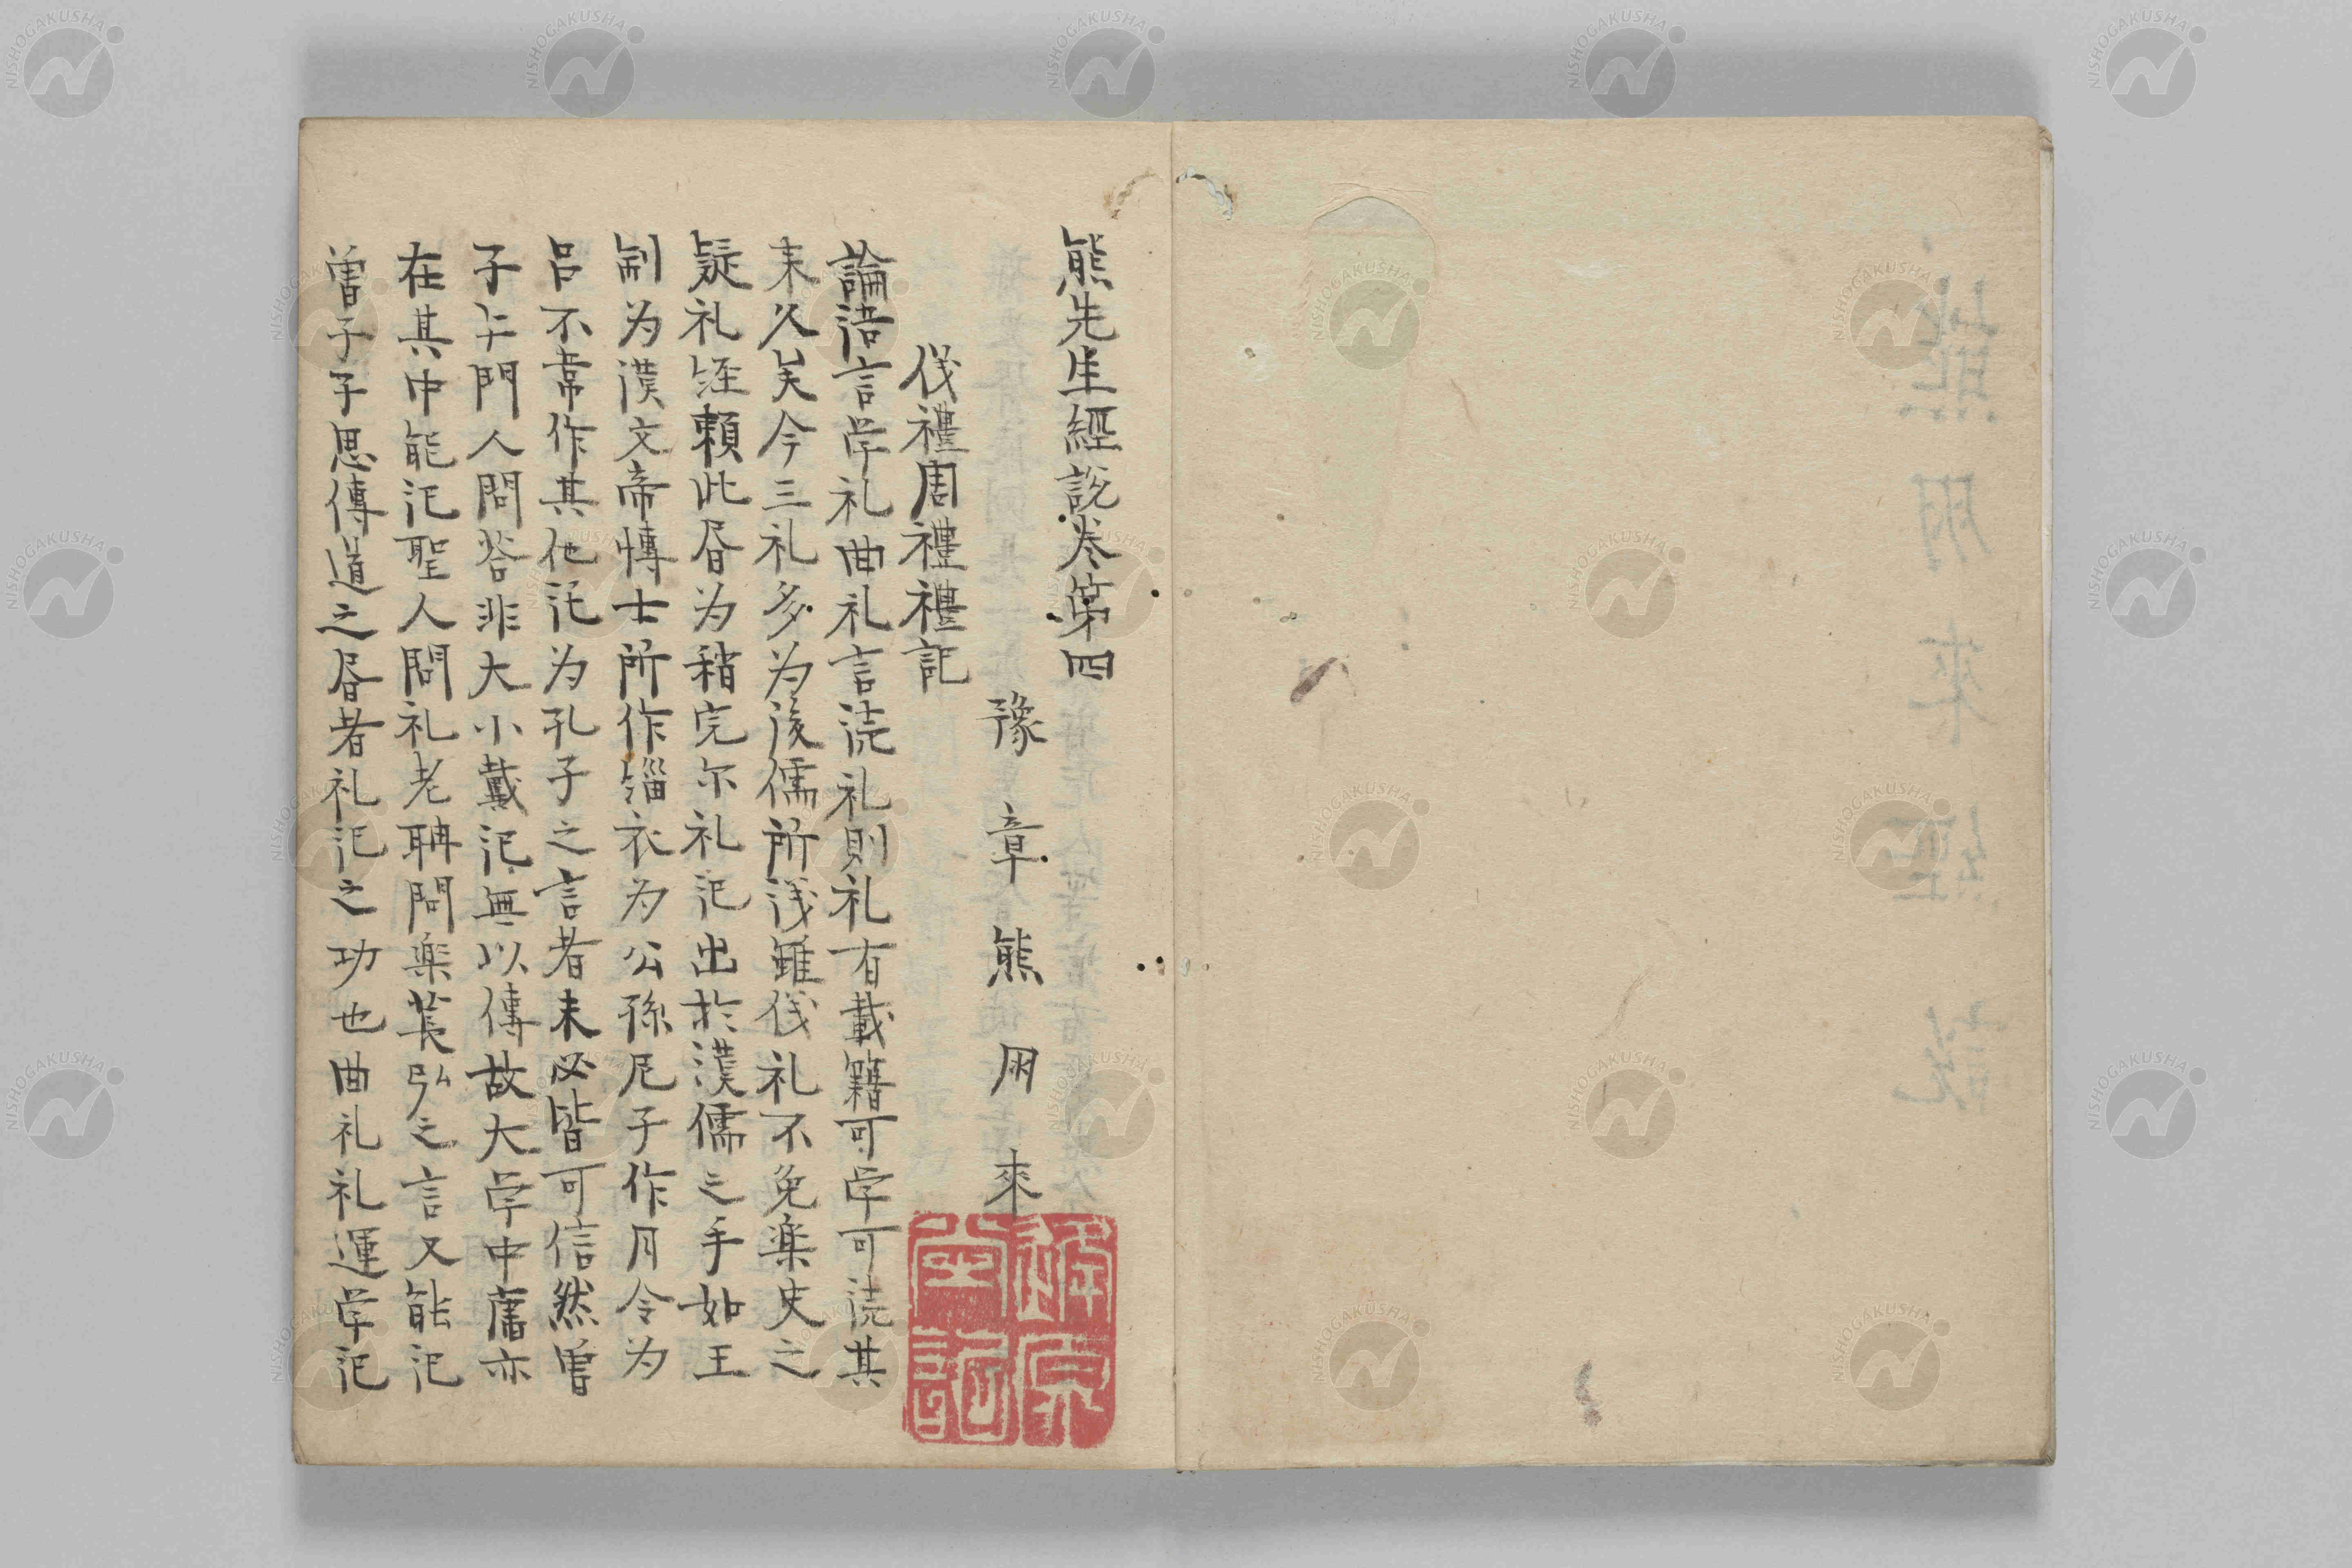 熊朋來經說
熊先生經說卷第四
豫章熊朋來
儀禮周禮禮記
論語言学礼曲礼言読礼則礼有載籍可学可読其
来久矣今三礼多为後儒所議雖儀礼不免楽史之
疑礼経頼此書为稍完尔礼記出於漢儒之手如王
制为漢文帝博士所作緇衣为公孫尼子作月令为
吕不韋作其他託为孔子之言者未必皆可信然曽
子与門人問答非大小戴記無以傳故大学中庸亦
在其中能記聖人問礼老聃問楽萇弘之言又能記
曽子子思傳道之書者礼記之功也曲礼礼運学記
NISHOGAKUSHA